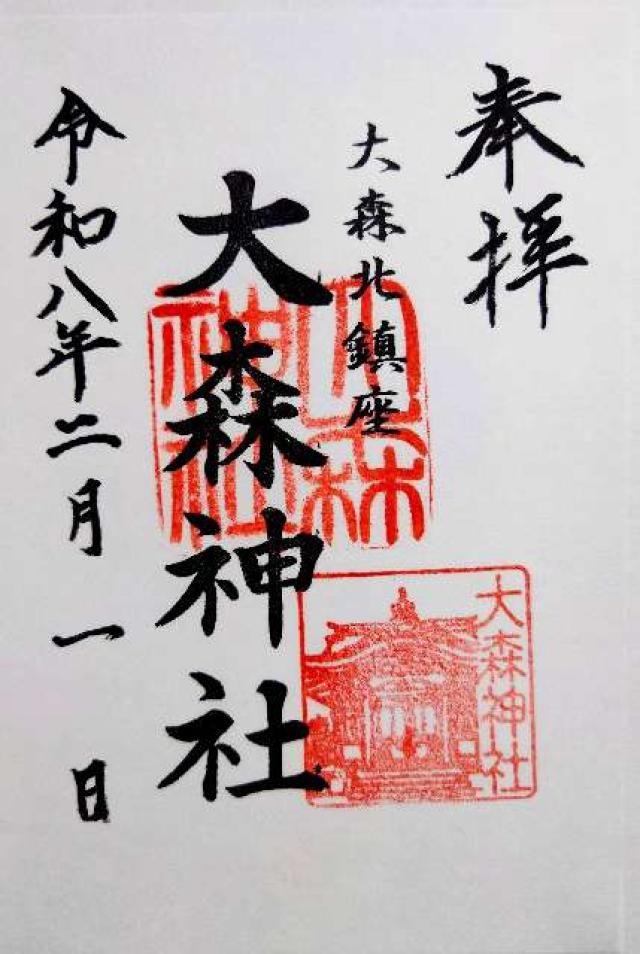 奉拝
大森北鎮座
大森神社
令和八年二月一日
大森神社
大森神社